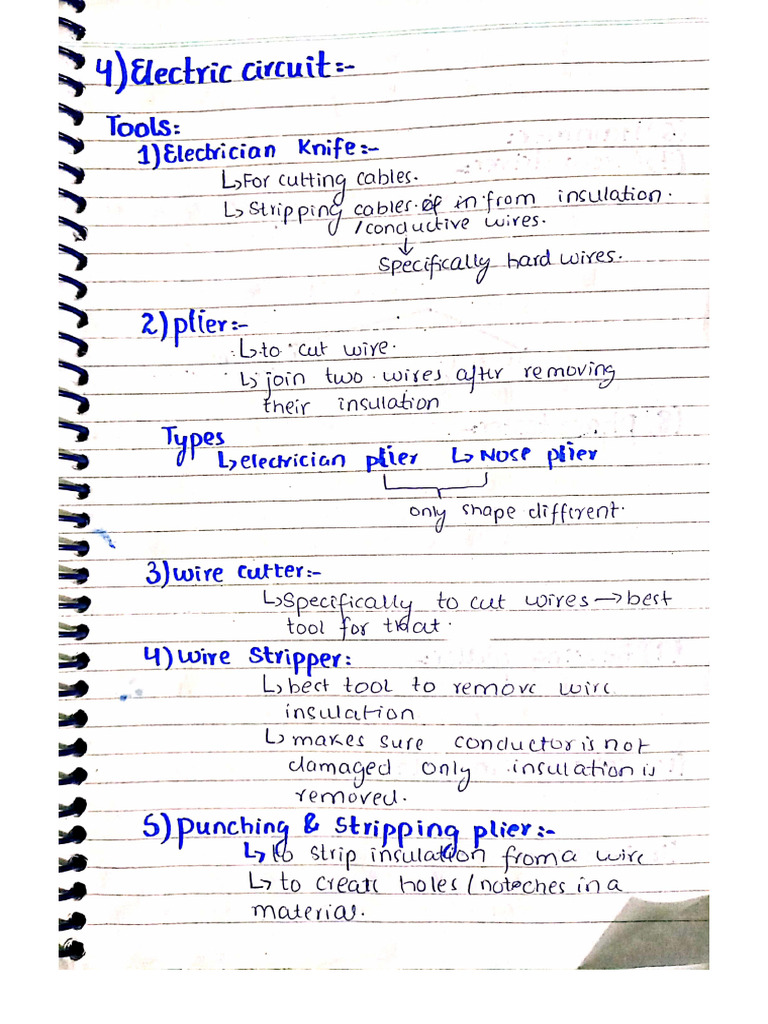 4) Electric circuit:-
Tools:
1) Electrician Knife:-
↳ For cutting cables.
↳ Stripping cables from insulation.
/conductive wires.
↓
Specifically hard wires.
2) plier:-
↳ to cut wire.
↳ join two wires after removing
their insulation
Types
↳ electrician plier ↳ Nose plier
only shape different.
3) wire cutter:-
↳ Specifically to cut wires → best
tool for that.
4) wire Stripper:
↳ best tool to remove wire
insulation
↳ makes sure conductor is not
damaged only insulation is
removed.
5) Punching & Stripping plier:-
↳ to strip insulation from a wire
↳ to create holes/noteches in a
material.